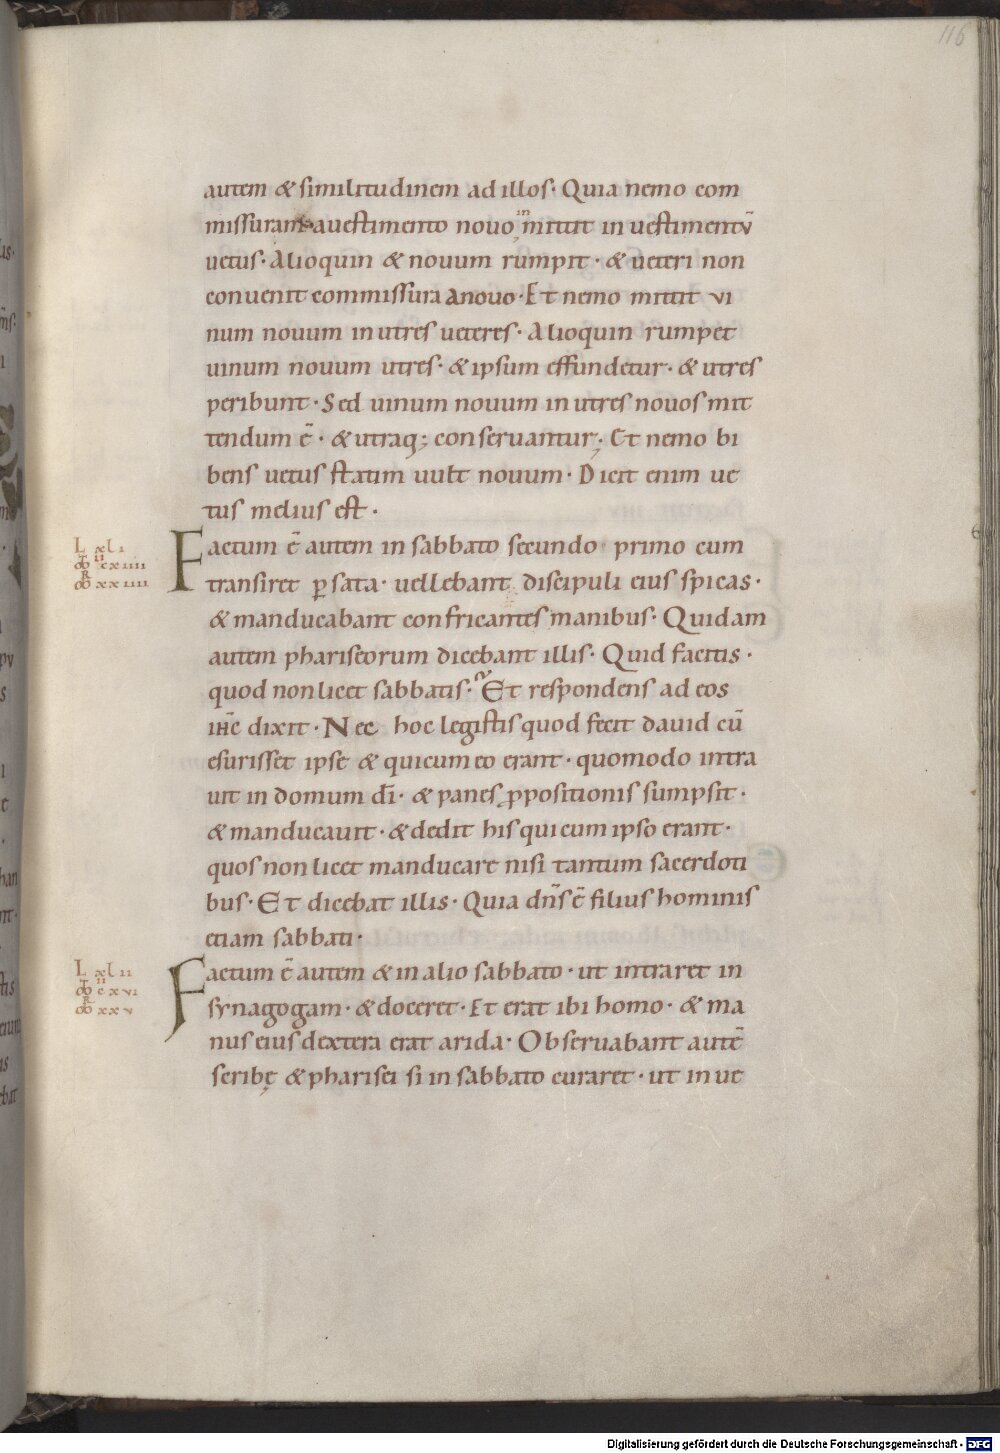 116
autem & similitudinem ad illos· Quia nemo com
missuram auestimento nouo inmittit in uestimentū
uetus· Alioquin & nouum rumpit· & ueteri non
conuenit commissura anouo· Et nemo mittit vi
num nouum in utres ueteres· Alioquin rumpet
uinum nouum utres· & ipsum effundetur· & utres
peribunt· Sed uinum nouum in utres nouos mit
tendum ē· & utraq; conseruantur· Et nemo bi
bens uetus statim uult nouum· Dicit enim ue
tus melius est·
Factum ē autem in sabbato secundo primo cum
transiret p sata· uellebant discipuli eius spicas·
& manducabant confricantes manibus· Quidam
autem phariseorum dicebant illis· Quid facitis·
quod non licet sabbatis· Et respondens ad eos
ih̄c dixit· Nec hoc legistis quod fecit dauid cū
esurisset ipse & qui cum eo erant· quomodo intra
uit in domum dī· & panes ppositionis sumpsit·
& manducauit· & dedit his qui cum ipso erant·
quos non licet manducare nisi tantum sacerdoti
bus· Et dicebat illis· Quia dn̄s ē filius hominis
etiam sabbati·
Factum ē autem & in alio sabbato· ut intraret in
synagogam· & doceret· Et erat ibi homo· & ma
nus eius dextera erat arida· Obseruabant autē
scribę & pharisei si in sabbato curaret· ut inue
L xli
L xlii
Digitalisierung gefördert durch die Deutsche Forschungsgemeinschaft - DFG